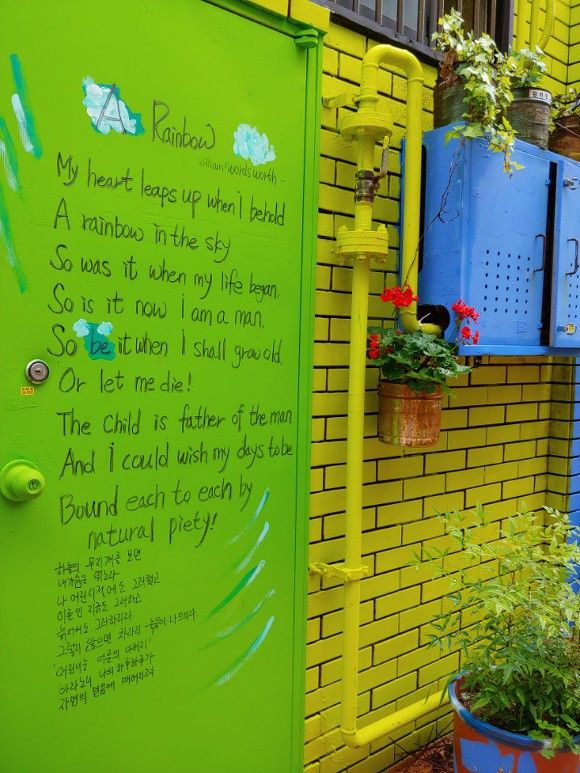 A Rainbow
william wordsworth -
My heart leaps up when i behold
A rainbow in the sky
So was it when my life began,
So is it now i am a man,
So be it when I shall grow old,
Or let me die!
The Child is father of the man
And I could wish my days to be
Bound each to each by
natural piety!
하늘의 무지개를 보면
내 가슴은 뛰노라
나 어린시절에도 그러했고
어른인 지금도 그러하고
늙어서도 그러하리라
그렇지 않으면 차라리 죽음이 나으리라
'어린이는 어른의 아버지'
바라노니 나의 하루하루가
자연의 믿음에 매어지고자